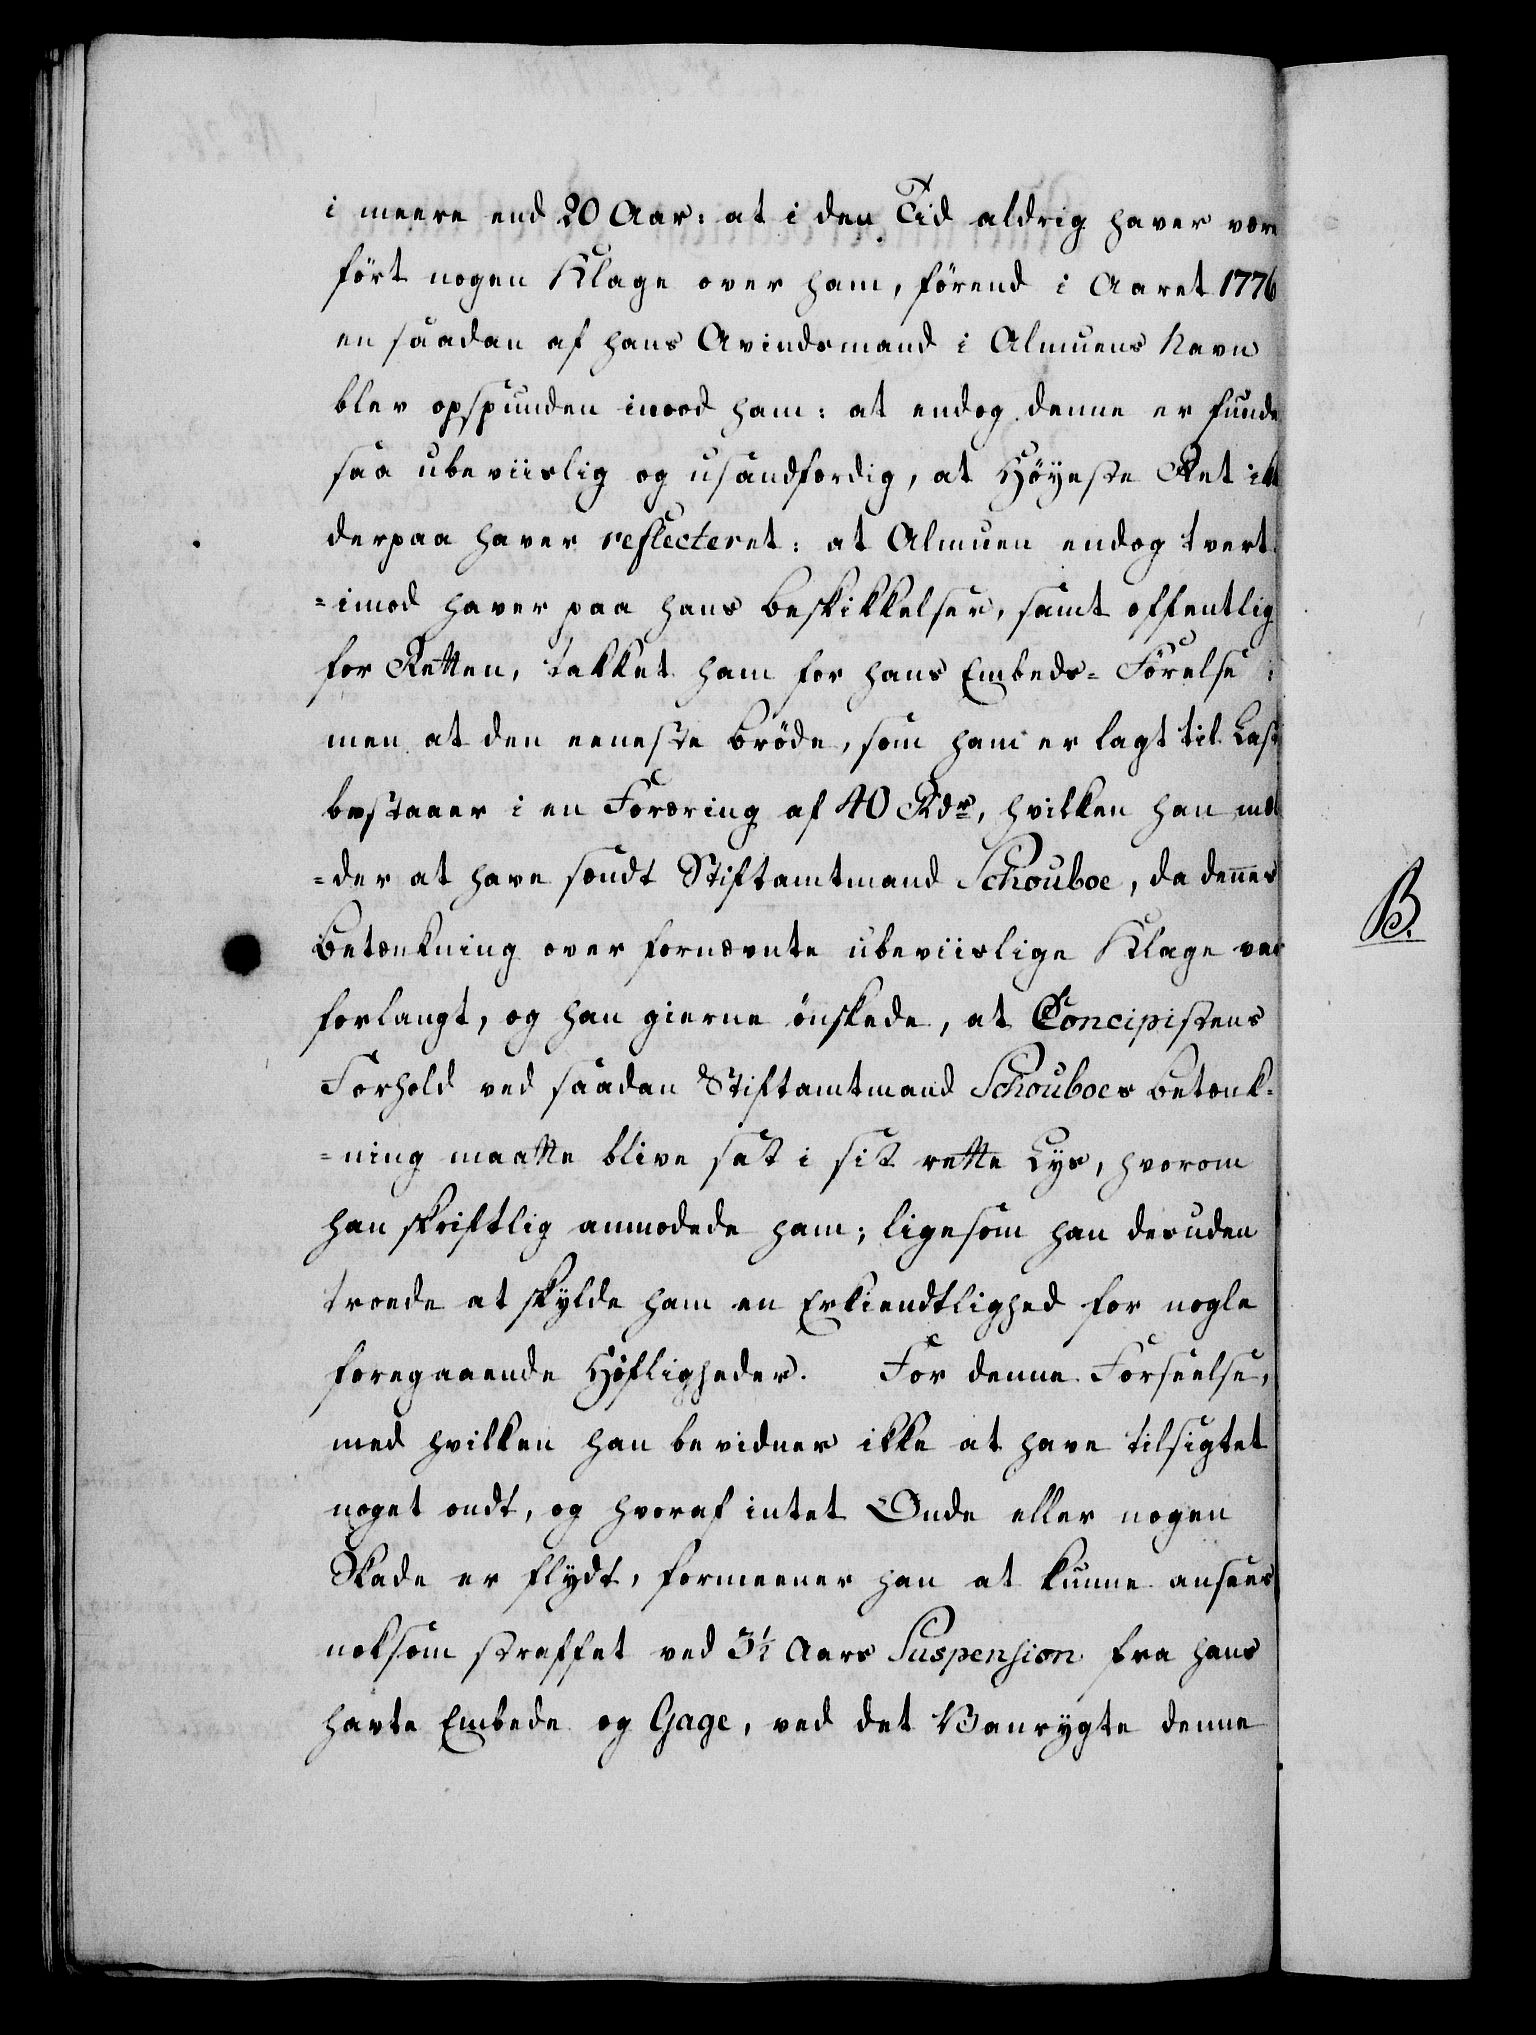 i meere end 20 Aar: at i den Tid aldrig haver være
ført nogen Klage over ham, förend i Aaret 1776
en saadan af hans Avindsmand i Almuens Navn
blev opspunden imod ham: at endog denne er funde
saa ubeviislig og usandfærdig, at Höyeste Ret ikk
derpaa haver reflecteret: at Almuen endog tvert-
=imod haver paa hans Beskikkelser, samt offentlig
for Retten, takket ham for hans Embeds-Förelse:
men at den eeneste Bröde, som ham er lagt til Last
bestaaer i en Foræring af 40 Rdr, hvilken han mel
=der at have sendt Stiftamtmand Schouboe, da dennes
Betænkning over fornævnte ubeviislige Klage var
forlangt, og han gierne önskede, at Concipistens
Forhold ved saadan Stiftamtmand Schouboes Betænk-
=ning maatte blive sat i sit rette Lys, hvorom
han skriftlig anmodede ham; ligesom han desuden
troede at skylde ham en Erkiendtlighed for nogle
foregaaende Höfligheder. For denne Forseelse,
med hvilken han bevidner ikke at have tilsigtet
noget ondt, og hvoraf intet Onde eller nogen
Skade er flydt, formeener han at kunne ansees
noksom straffet ved 3½ Aars Suspension fra hans
havte Embede og Gage, ved det Vanrygte denne
B.